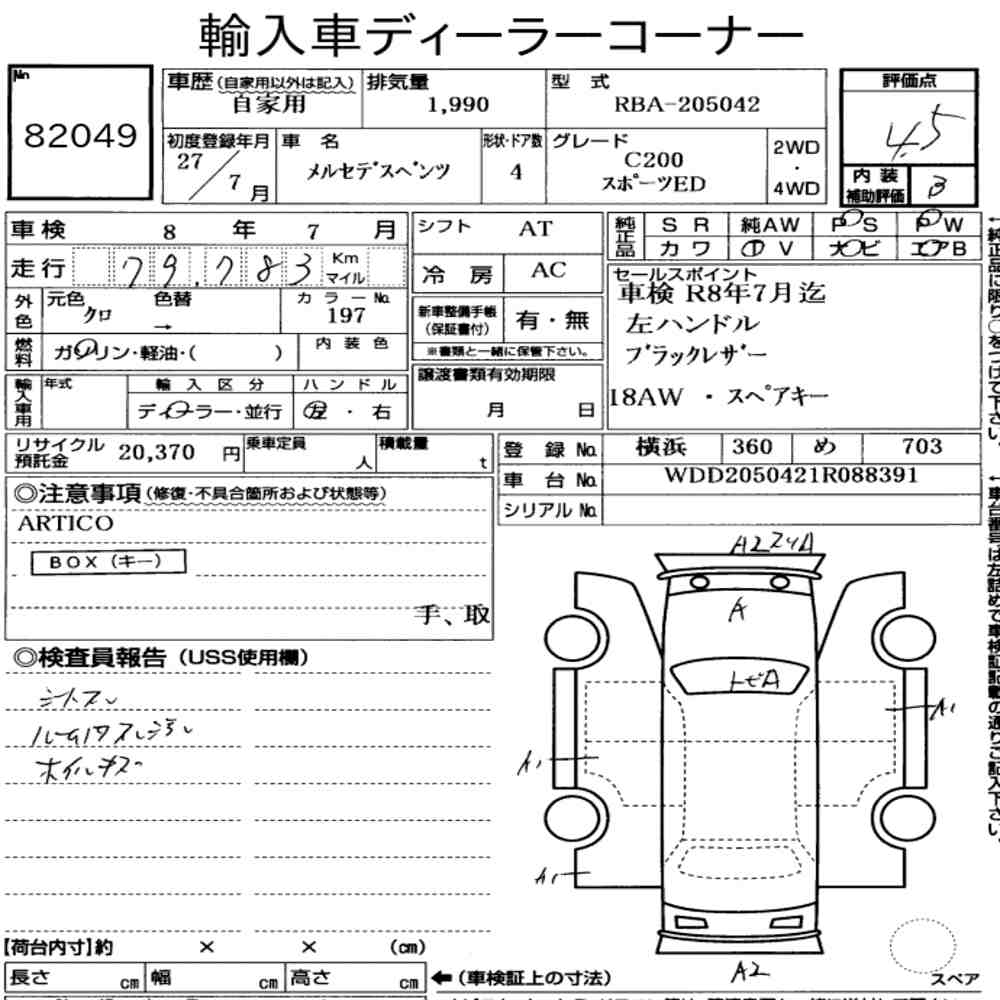 輸入車ディーラーコーナー
No.
82049
車歴(自家用以外は記入)
自家用
排気量
1,990
型 式
RBA-205042
評価点
4.5
初度登録年月
27/7月
車 名
メルセデスベンツ
形状・ドア数
4
グレード
C200
スポーツED
2WD
・
4WD
内装
補助評価
B
車検 8 年 7 月
走行 79,783 Km
マイル
外色
元色
クロ
色替
→
カラーNo.
197
燃料
ガソリン・軽油・( )
内装色
輸入車用
年式
輸入区分
ディーラー・並行
ハンドル
左・右
シフト
AT
冷房
AC
新車整備手帳
(保証書付)
有・無
※書類と一緒に保管下さい。
譲渡書類有効期限
月 日
純正品
SR
純AW
PS
PW
カワ
TV
ナビ
エアB
セールスポイント
車検 R8年7月迄
左ハンドル
ブラックレザー
18AW ・スペアキー
←純正品に限り○をつけて下さい。
リサイクル
預託金
20,370 円
乗車定員
人
積載量
t
登録No.
横浜 360 め 703
車台No.
WDD2050421R088391
シリアルNo.
←車台番号は左詰めで車検証記載の通りご記入下さい。
◎注意事項(修復・不具合箇所および状態等)
ARTICO
BOX(キー)
手、取
◎検査員報告(USS使用欄)
シートスレ
ルーム内スレ汚レ
ホイルキズ
A
トビA
A1
A1
A1
A2
スペア
【荷台内寸】約 × × (cm)
長さ cm 幅 cm 高さ cm
←(車検証上の寸法)